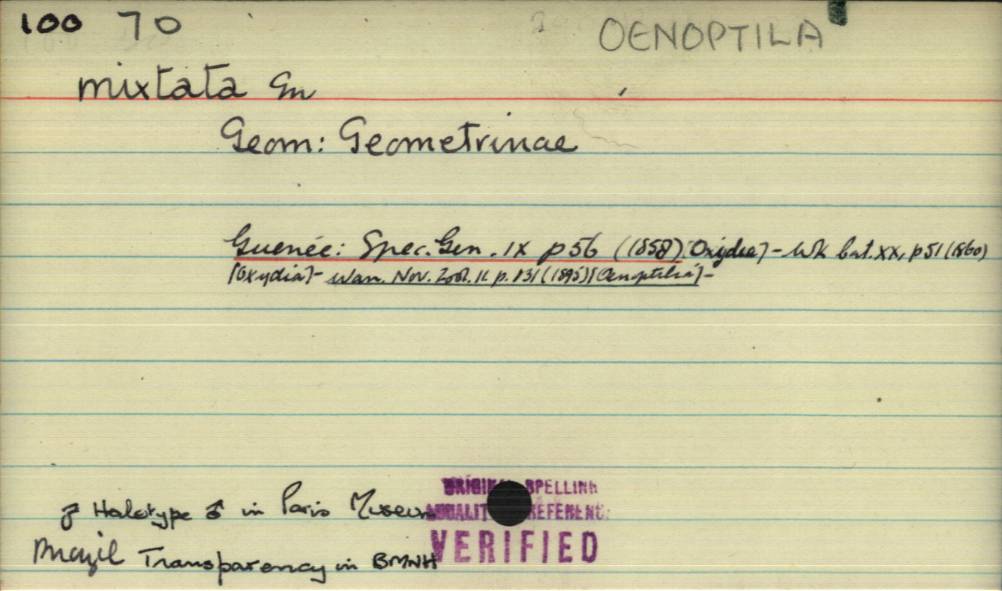 100 70 OENOPTILA
mixtata Gn
Geom: Geometrinae
Guenée: Spec. Gen. IX p 56 (1858) [Oxydia] - Wk Cat. XX, p 51 (1860)
[Oxydia] - Warr. Nov. Zool. II p. 131 (1895) [Oenoptila] -
♂ Holotype ♂ in Paris Museum
Brazil Transparency in BMNH
ORIGINAL SPELLING
LOCALITY REFERENCE
VERIFIED